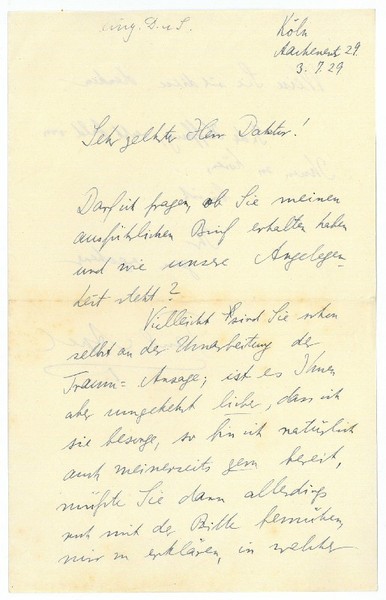 eing. D.u.S.
Köln
Aachenerst 29.
3. 7. 29
Sehr geehrter Herr Doktor!
Darf ich fragen, ob Sie meinen
ausführlichen Brief erhalten haben
und wie unsere Angelegen-
heit steht?
Vielleicht sind Sie schon
selbst an der Umarbeitung der
Traum-Ansage; ist es Ihnen
aber umgekehrt lieber, dass ich
sie besorge, so bin ich natürlich
auch meinerseits gern bereit,
müßte Sie dann allerdings
mit der Bitte bemühen,
mir zu erklären, in welcher